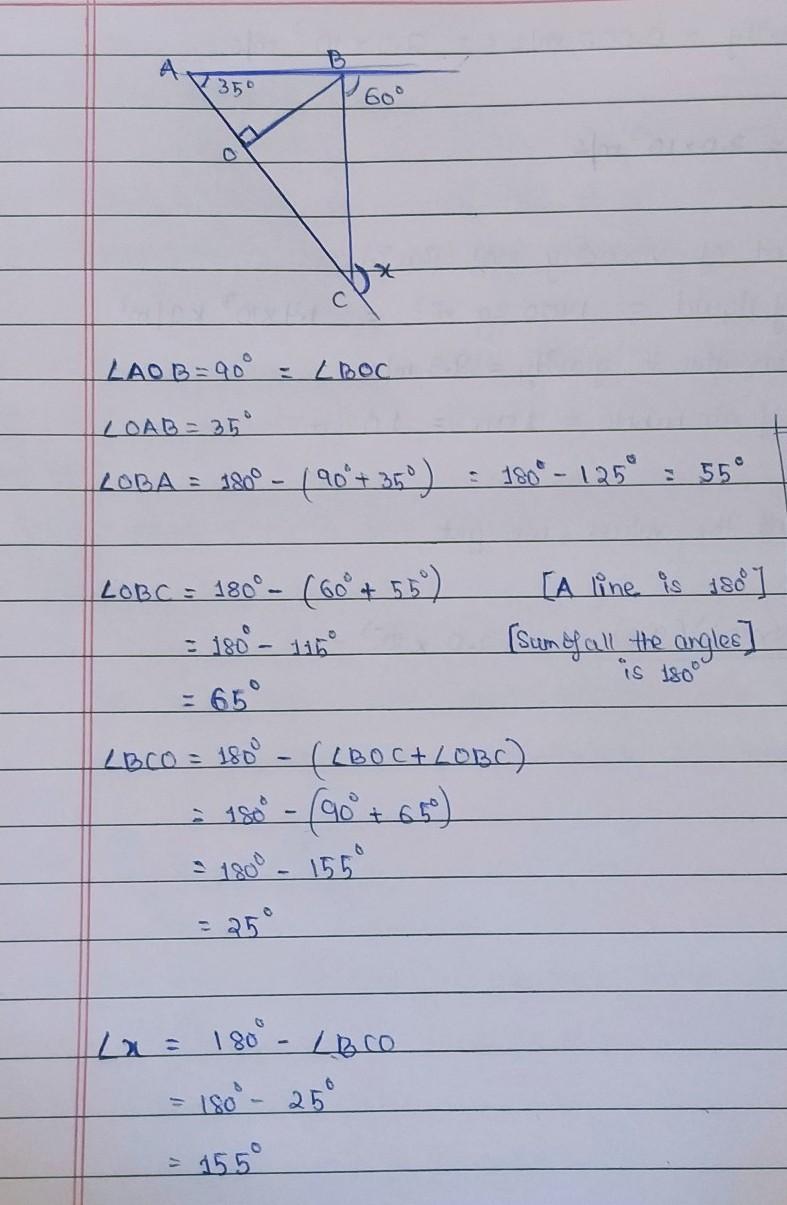 A
B
35°
60°
O
x
C
∠AOB = 90° = ∠BOC
∠OAB = 35°
∠OBA = 180° - (90° + 35°) = 180° - 125° = 55°
∠OBC = 180° - (60° + 55°) [A line is 180°]
= 180° - 115° [Sum of all the angles]
is 180°
= 65°
∠BCO = 180° - (∠BOC + ∠OBC)
= 180° - (90° + 65°)
= 180° - 155°
= 25°
∠x = 180° - ∠BCO
= 180° - 25°
= 155°